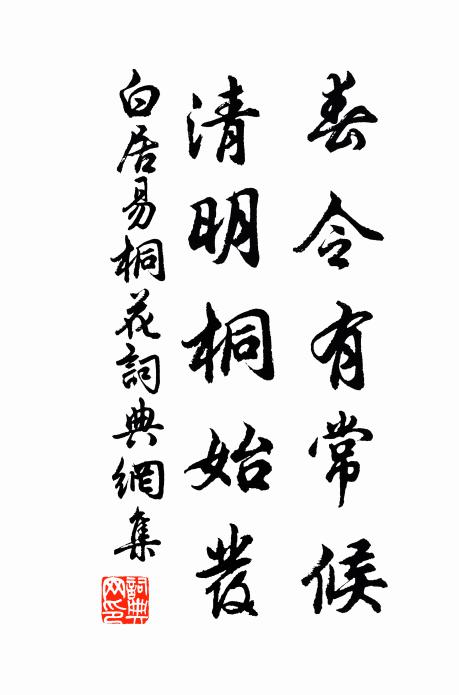 春令有常候
清明桐始發
白居易桐花詞典網集
詞典網印